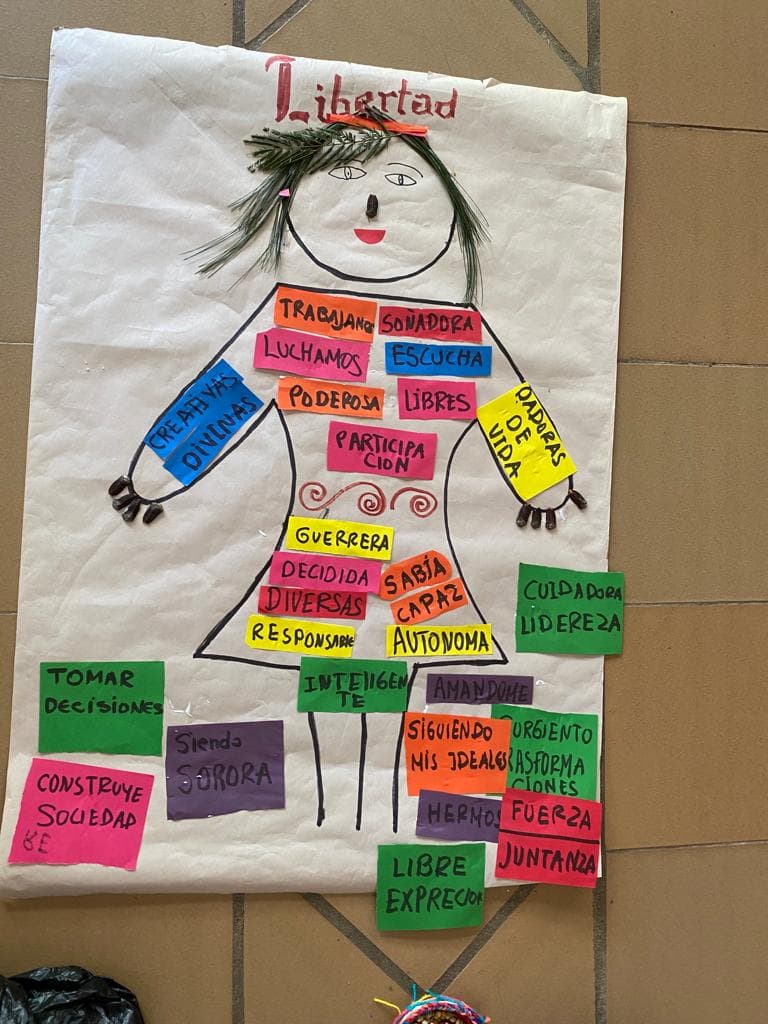 Libertad
TRABAJANO
SOÑADORA
LUCHAMOS
ESCUCHA
PODEROSA
LIBRES
CREATIVAS
DIVINAS
DADORAS
DE
VIDA
PARTICIPA
CION
GUERRERA
DECIDIDA
SABÍA
DIVERSAS
CAPAZ
RESPONSABLE
AUTONOMA
CUIDADORA
LIDEREZA
INTELIGEN
TE
AMANDOME
TOMAR
DECISIONES
Siendo
SORORA
SIGUIENDO
MIS IDEALES
URGIENTO
RASFORMA
CIONES
CONSTRUYE
SOCIEDAD
HERMOS
FUERZA
JUNTANZA
LIBRE
EXPRECION